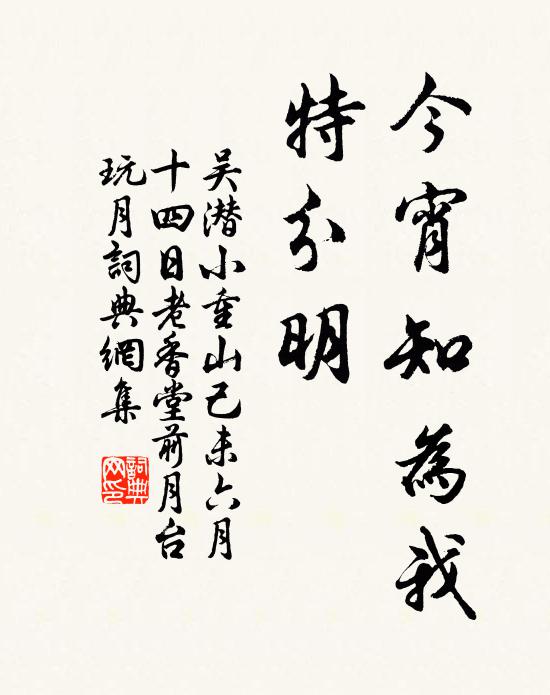 今宵知為我
特分明
吴潛小重山己未六月
十四日老香堂前月台
玩月詞典網集
詞典网印